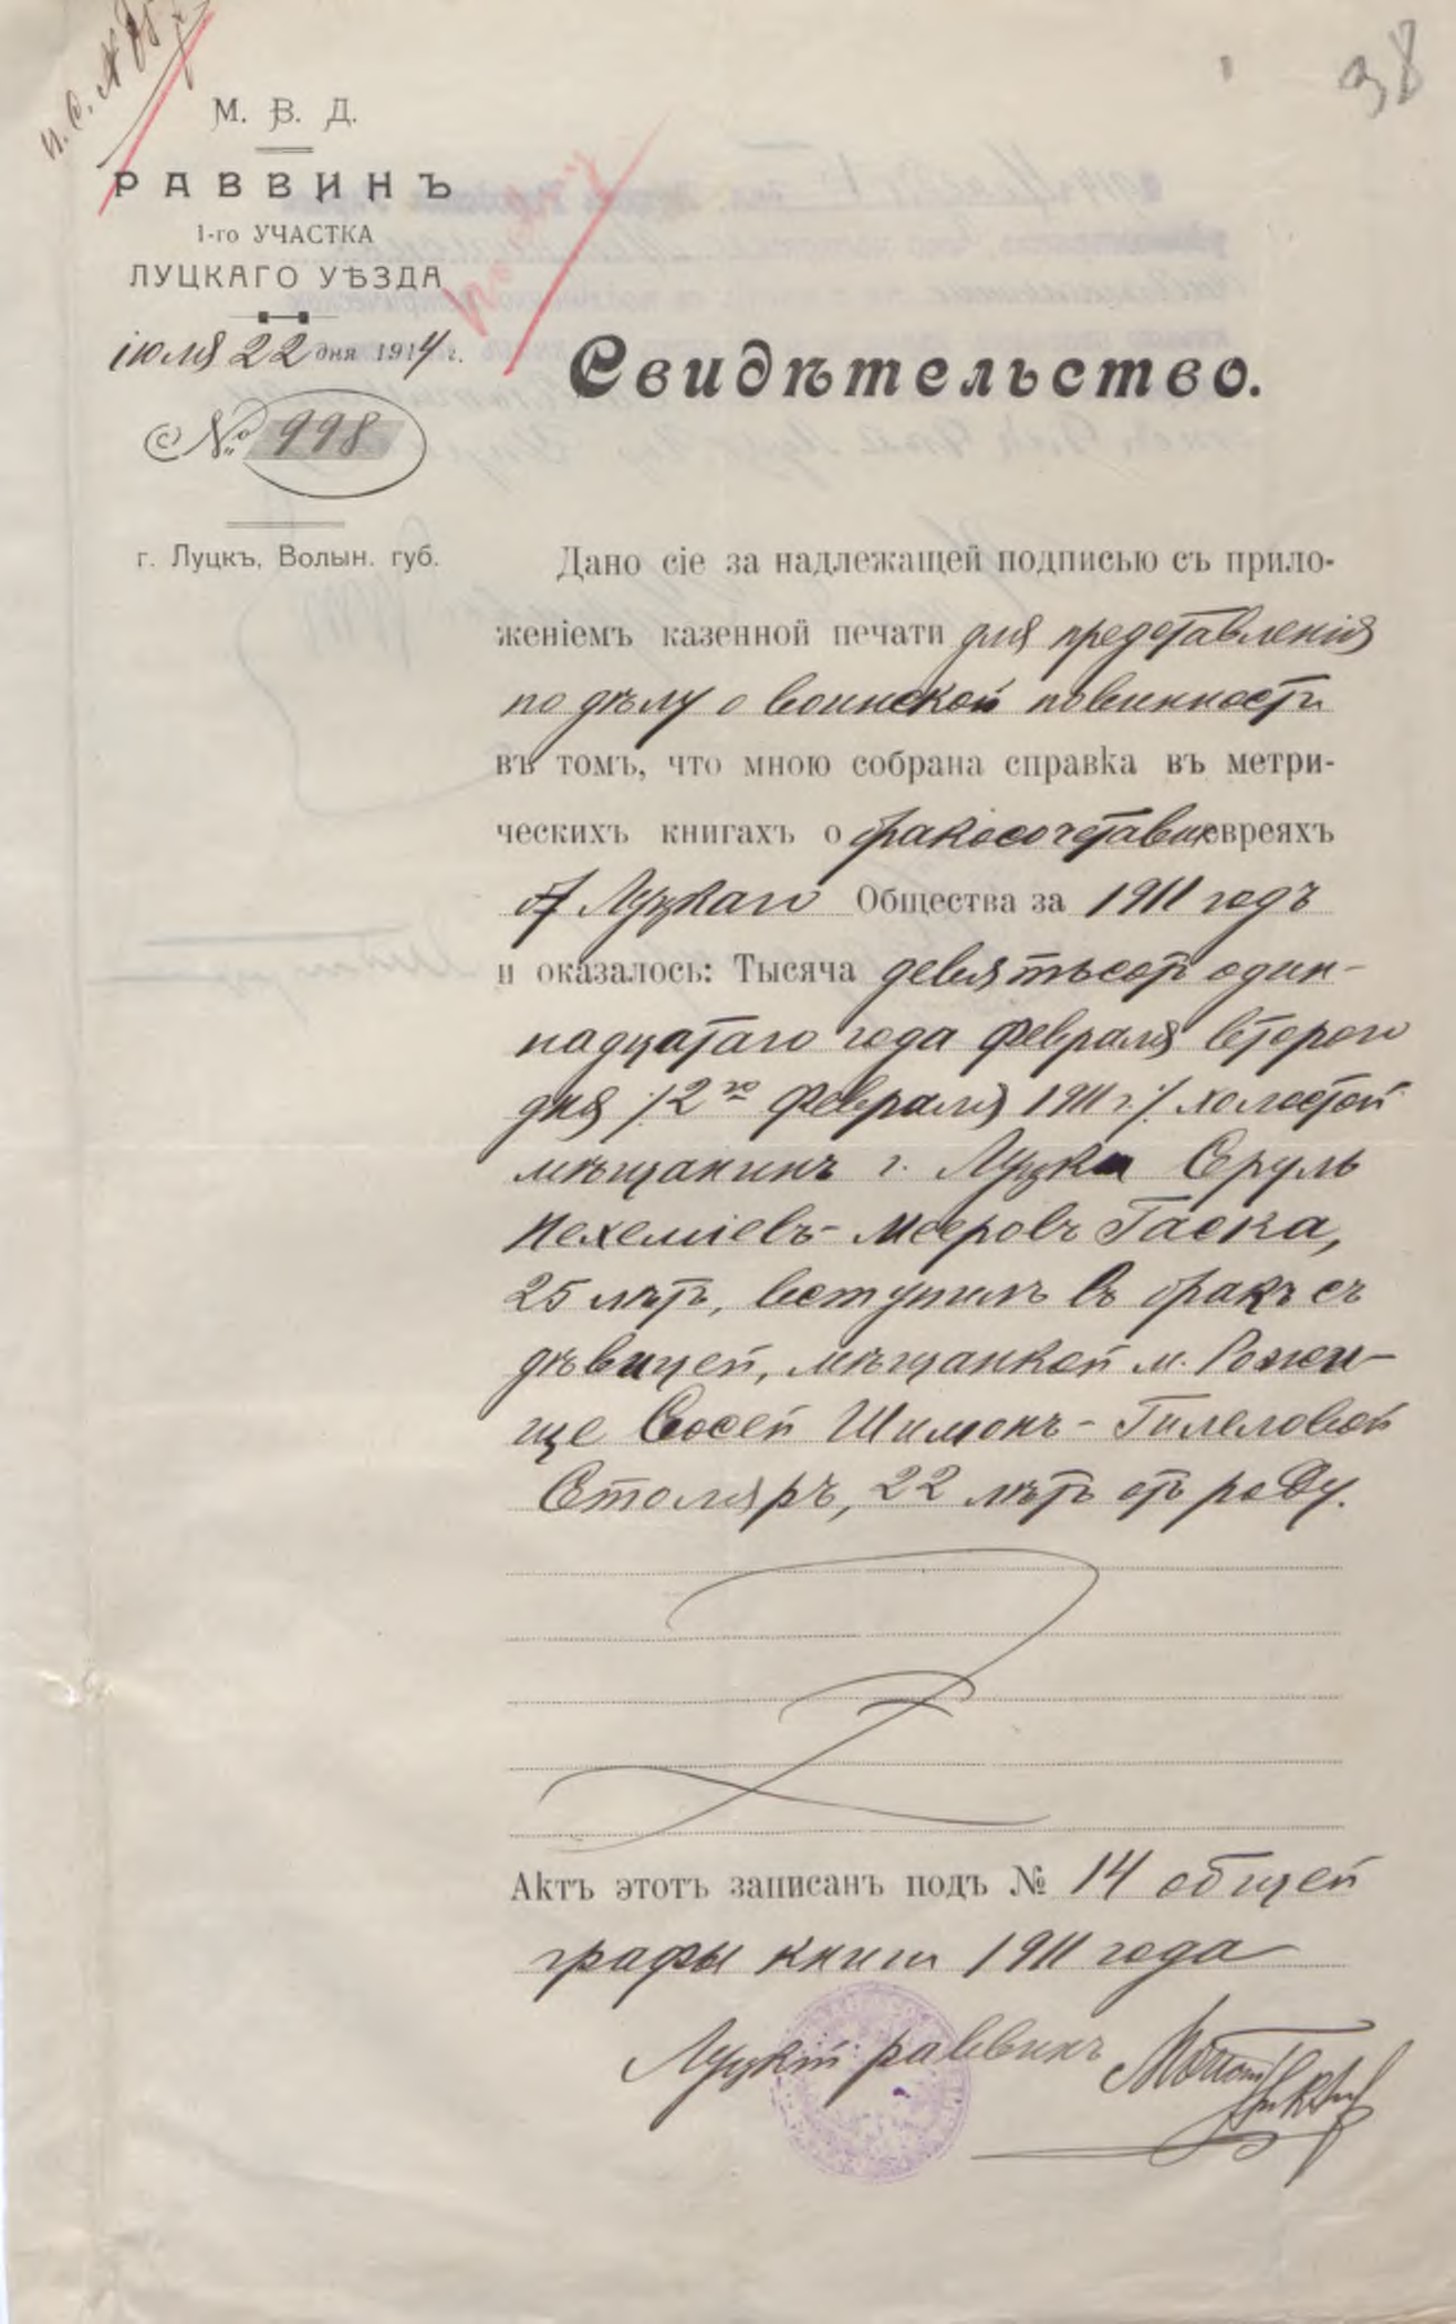 38
М. В. Д.
РАВВИНЪ
1-го УЧАСТКА
ЛУЦКАГО УѢЗДА
іюля 22 дня 1914 г.
№ 998
г. Луцкъ, Волын. губ.
Свидѣтельство.
Дано сіе за надлежащей подписью съ прило-
женіемъ казенной печати для представленія
по дѣлу о воинской повинности
въ томъ, что мною собрана справка въ метри-
ческихъ книгахъ о бракосочетавш. евреяхъ
Луцкаго Общества за 1911 годъ
и оказалось: Тысяча девятьсотъ один-
надцатаго года февраля второго
дня /2го февраля 1911 г./ холостой
мѣщанинъ г. Луцка Сруль
Нехеміевъ-Мееровъ Гаска,
25 лѣтъ, вступилъ въ бракъ съ
дѣвицей, мѣщанкой м. Рожи-
ще Сосей Шимонъ-Гилеловой
Столяръ, 22 лѣтъ отъ роду.
Актъ этотъ записанъ подъ № 14 общей
графы книги 1911 года
Луцкій раввинъ